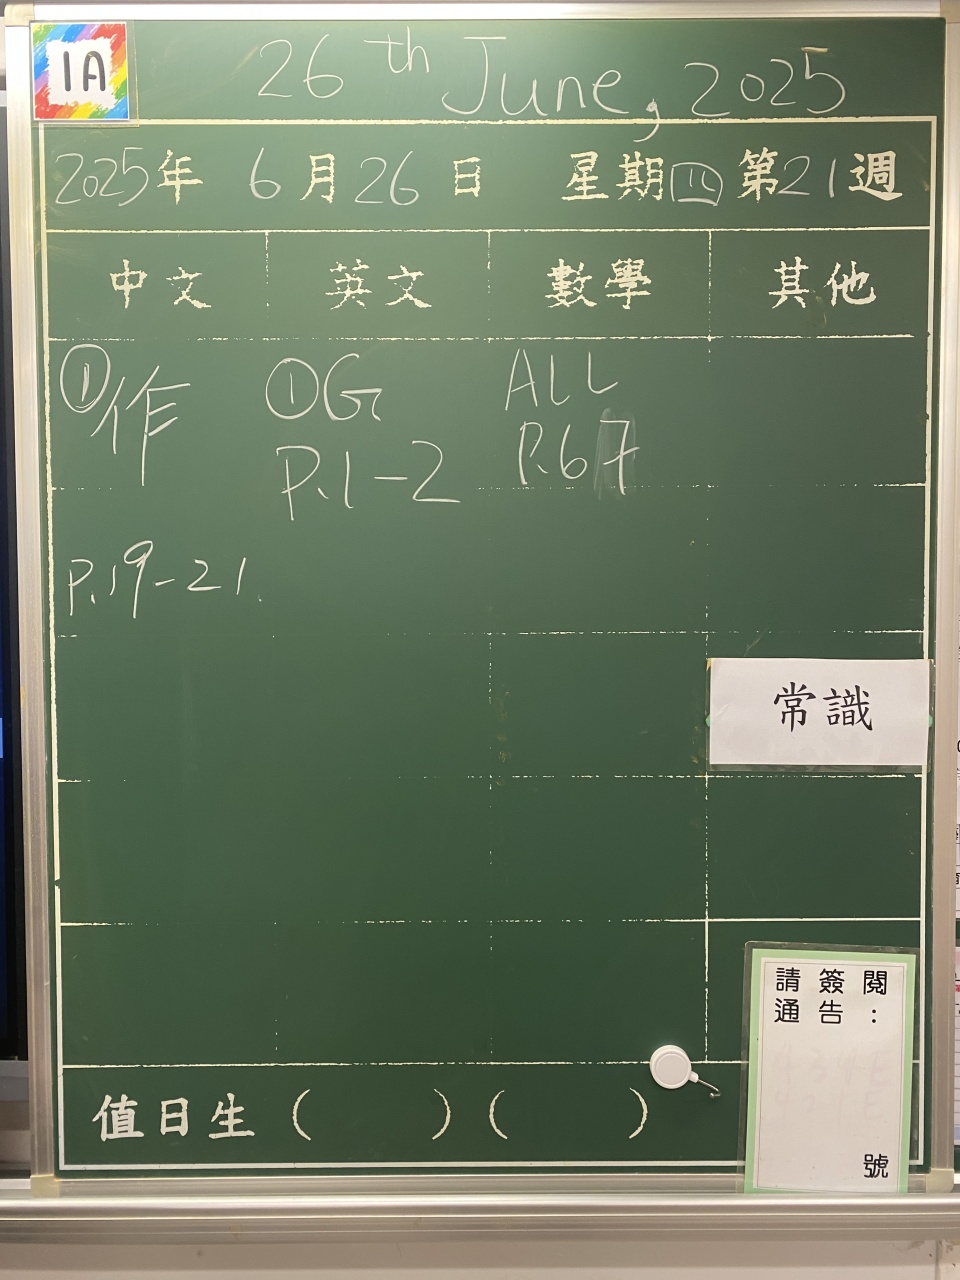 1A
26th June, 2025
2025年 6月26日 星期四 第21週
中文 英文 數學 其他
①作 ①G ALL
P.1-2 P.67
P.19-21.
常識
請簽閱
通告:
號
值日生( )( )